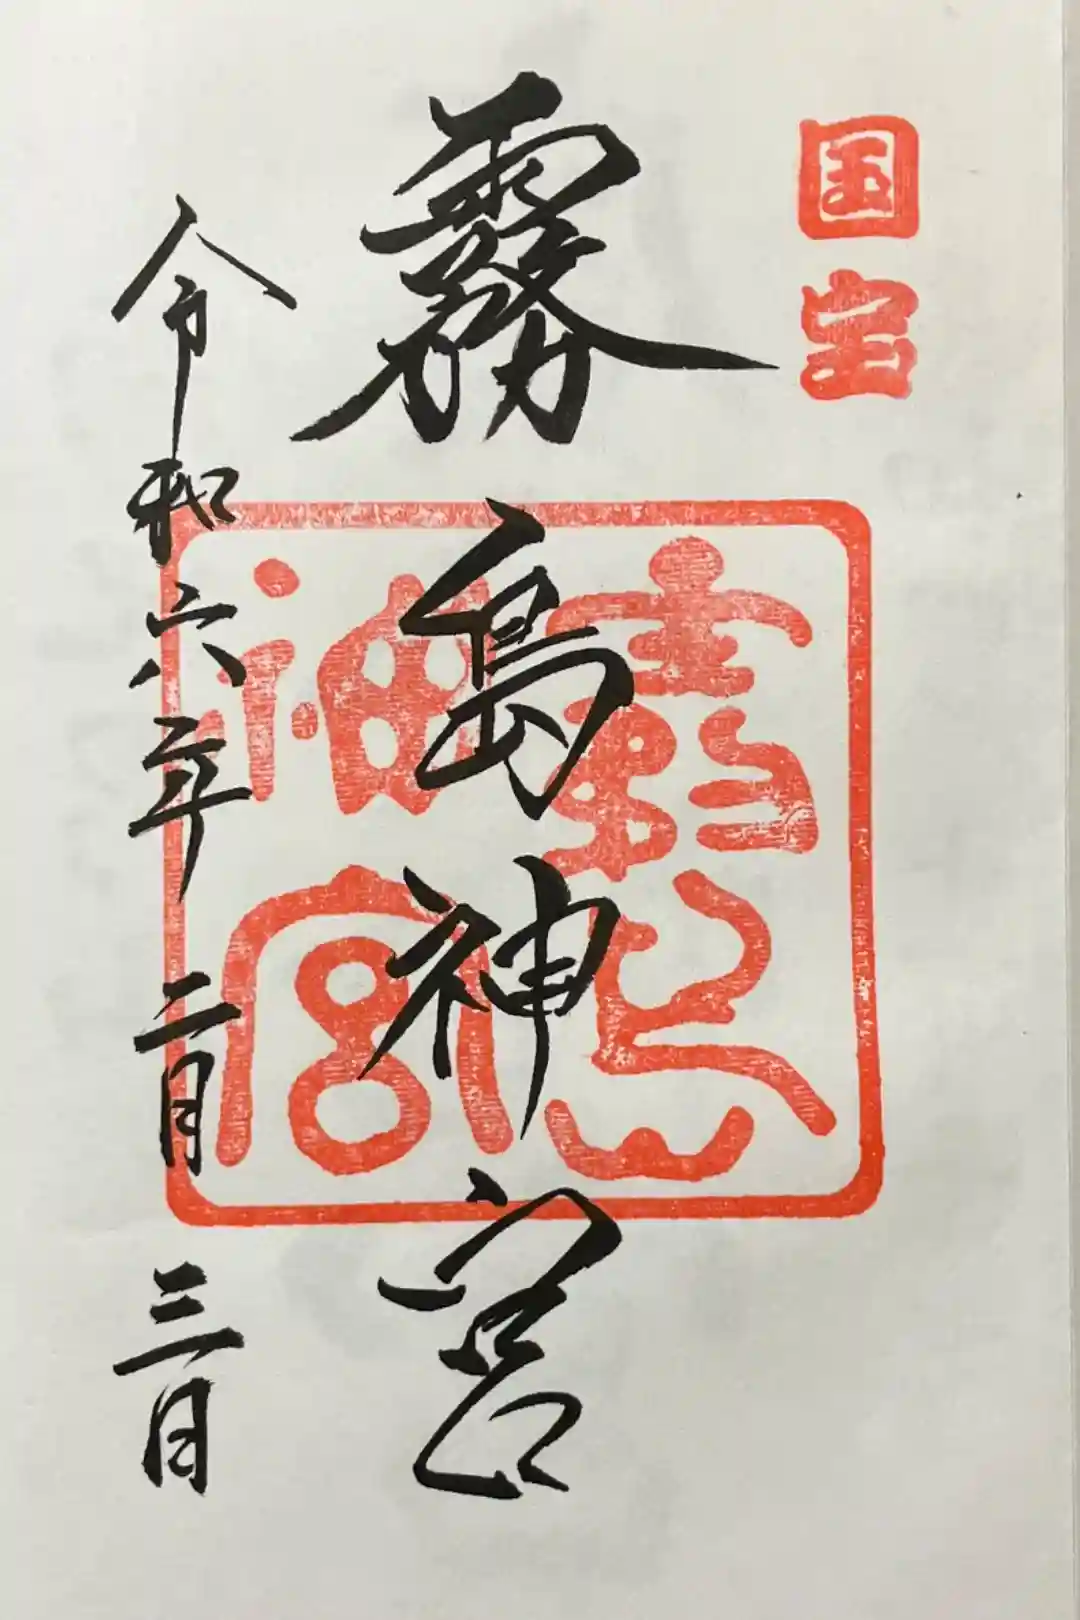 国宝
霧島神宮
霧島神宮
令和六年二月三日